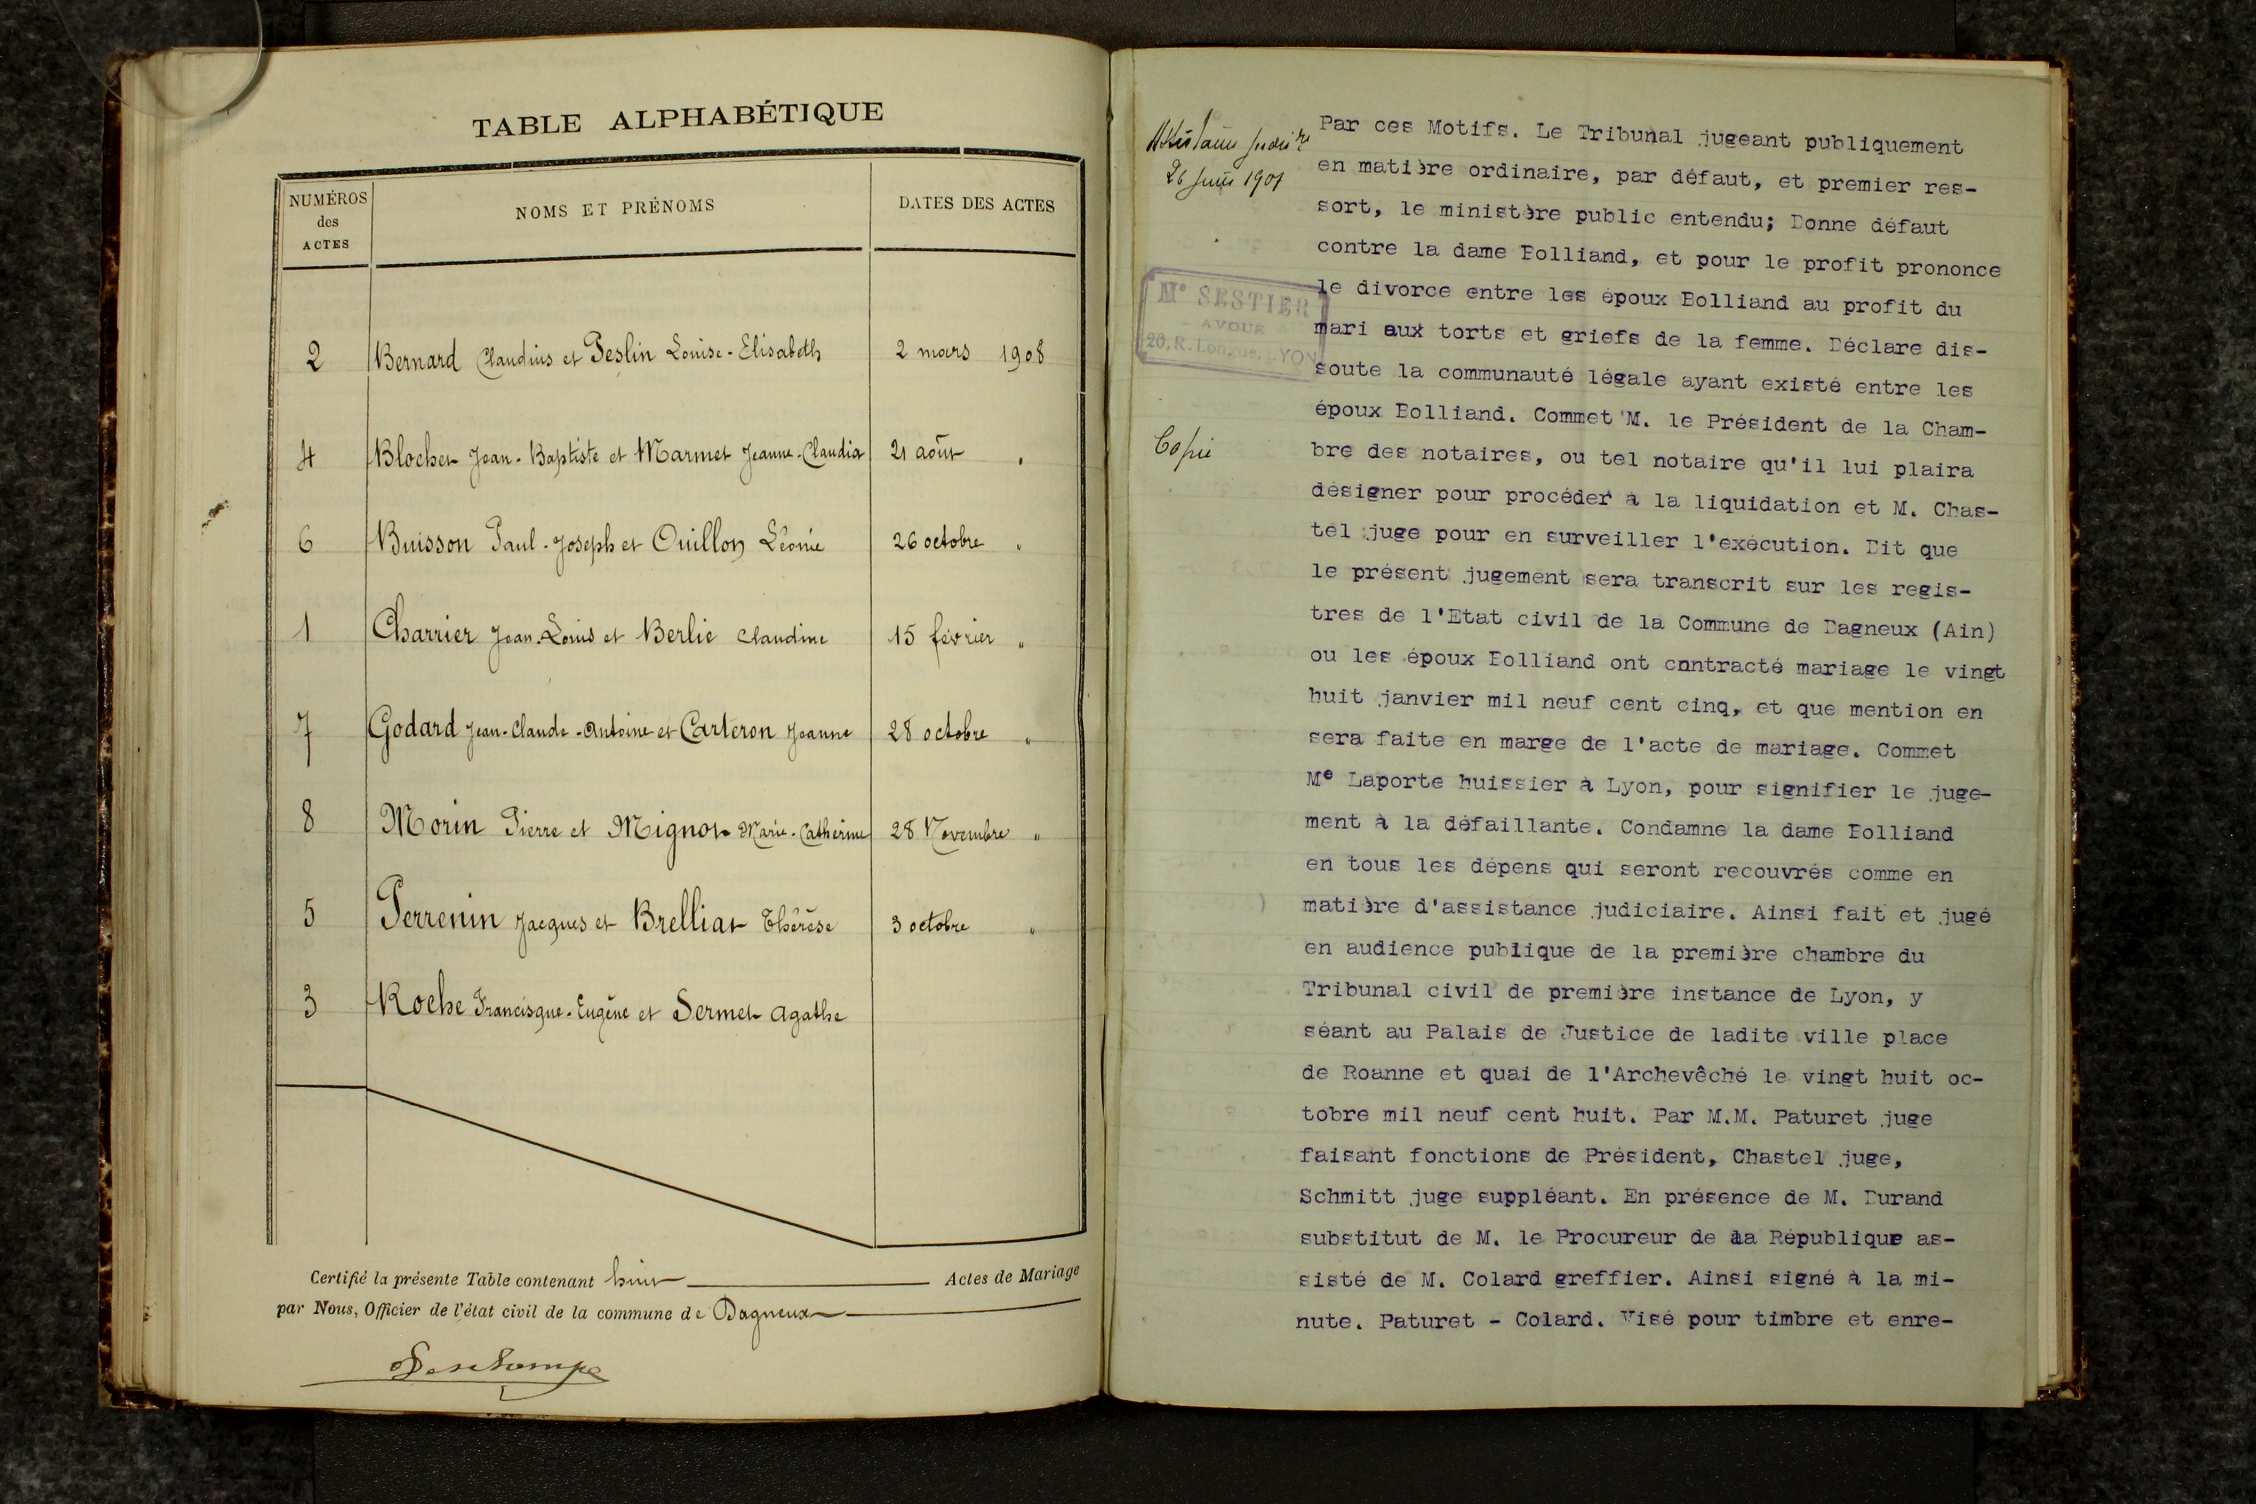 TABLE ALPHABÉTIQUE
NUMÉROS des ACTES
NOMS ET PRÉNOMS
DATES DES ACTES
2 Bernard Claudius et Peslin Louise-Elisabeth 2 mars 1908
4 Blochet Jean-Baptiste et Marmet Jeanne-Claudia 21 août "
6 Buisson Paul-Joseph et Ouillon Léonie 26 octobre "
1 Charrier Jean-Louis et Berlie Claudine 15 février "
7 Godard Jean-Claude-Antoine et Carteron Jeanne 28 octobre "
8 Morin Pierre et Mignot Marie-Catherine 28 Novembre "
5 Perrenin Jacques et Brelliat Thérèse 3 octobre "
3 Roche Francisque-Eugène et Sermet Agathe
Certifié la présente Table contenant huit Actes de Mariage
par Nous, Officier de l'état civil de la commune de Dagneux
Deschamps
26 juin 1907
Me SESTIER
AVOUÉ
20, R. Longue, LYON
Copie
Par ces Motifs. Le Tribunal jugeant publiquement
en matière ordinaire, par défaut, et premier res-
sort, le ministère public entendu; Donne défaut
contre la dame Bolliand, et pour le profit prononce
le divorce entre les époux Bolliand au profit du
mari aux torts et griefs de la femme. Déclare dis-
soute la communauté légale ayant existé entre les
époux Bolliand. Commet M. le Président de la Cham-
bre des notaires, ou tel notaire qu'il lui plaira
désigner pour procéder à la liquidation et M. Chas-
tel juge pour en surveiller l'exécution. Dit que
le présent jugement sera transcrit sur les regis-
tres de l'Etat civil de la Commune de Dagneux (Ain)
ou les époux Bolliand ont cnntracté mariage le vingt
huit janvier mil neuf cent cinq, et que mention en
sera faite en marge de l'acte de mariage. Commet
Me Laporte huissier à Lyon, pour signifier le juge-
ment à la défaillante. Condamne la dame Bolliand
en tous les dépens qui seront recouvrés comme en
matière d'assistance judiciaire. Ainsi fait et jugé
en audience publique de la première chambre du
Tribunal civil de première instance de Lyon, y
séant au Palais de Justice de ladite ville place
de Roanne et quai de l'Archevêché le vingt huit oc-
tobre mil neuf cent huit. Par M.M. Paturet juge
faisant fonctions de Président, Chastel juge,
Schmitt juge suppléant. En présence de M. Durand
substitut de M. le Procureur de la République as-
sisté de M. Colard greffier. Ainsi signé à la mi-
nute. Paturet - Colard. Visé pour timbre et enre-